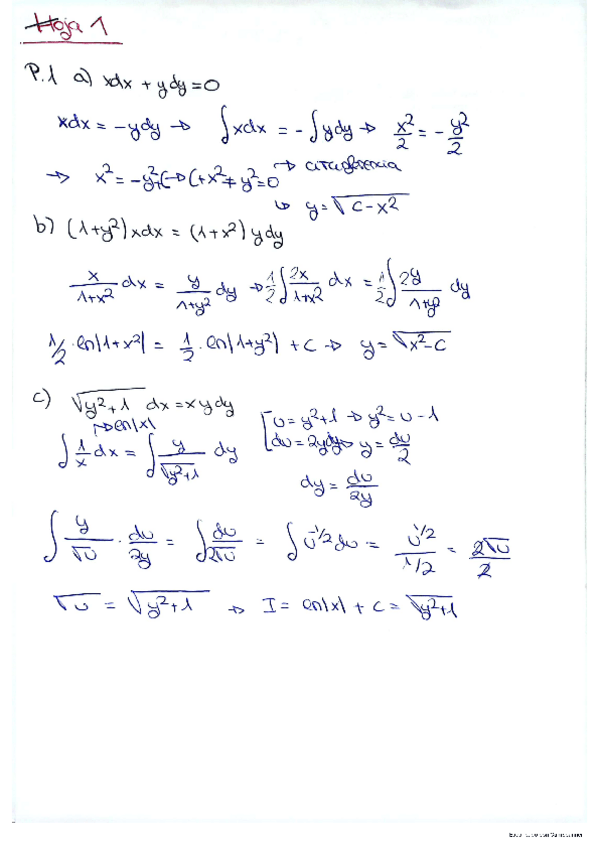 Hoja 1
P.1 a) xdx + ydy = 0
xdx = -ydy → ∫xdx = -∫ydy → x²/2 = -y²/2
→ x² = -y²+C → C+x²+y²=0 → circunferencia
↳ y = √(C-x²)
b) (1+y²)xdx = (1+x²)ydy
x/(1+x²) dx = y/(1+y²) dy → 1/2 ∫ 2x/(1+x²) dx = 1/2 ∫ 2y/(1+y²) dy
1/2 · ln|1+x²| = 1/2 · ln|1+y²| + C → y = √(x²-C)
c) √(y²+1) dx = xydy
→ ln|x|
∫ 1/x dx = ∫ y/√(y²+1) dy
[u = y²+1 → y² = u-1
du = 2ydy → y = du/2
dy = du/2y
∫ y/√u · du/2y = ∫ du/2√u = ∫ u^-1/2 du = u^1/2 / 1/2 = 2√u/2
√u = √(y²+1) → I = ln|x| + C = √(y²+1)